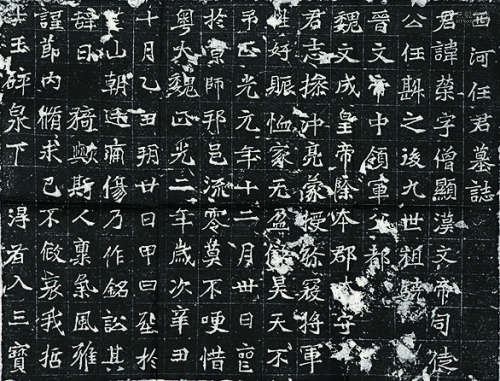 西河任君墓誌
君諱榮字僧顯漢文帝司徒
公任敞之後九世祖
晉文帝中領軍父都
魏文成皇帝除本郡守
君志捴沖亮蒙授綏將軍
性好賑恤家无盈昊天不
弔正光元年十二月卅日薨
於京師邦邑流零莫不哽惜
粵大魏正光二年歲次辛丑
十月乙丑朔廿日甲申塟於
山朝廷痛傷乃作銘訟其
辞曰 猗歟斯人稟氣風雅
謹節内脩求己不傲哀我哲
士玉碎泉下 淂者入三寶